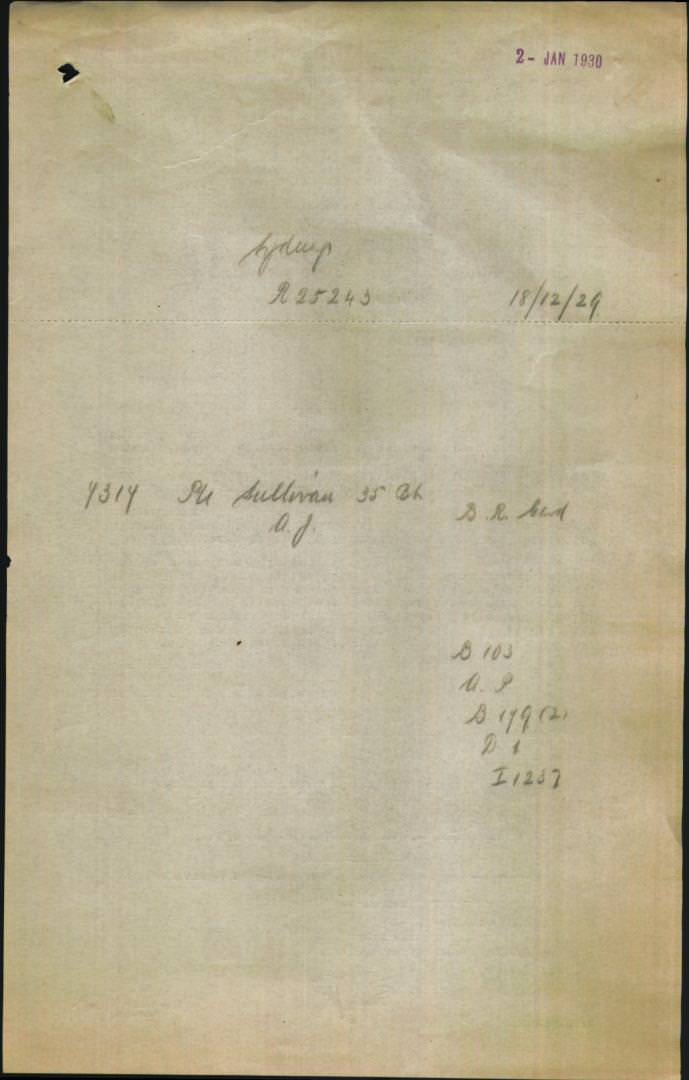 2- JAN 1930
Sydney
R25243
18/12/29
7317 Pte Sullivan 35 Bn
A. J.
B. R. Card
B 103
A. P
B 179 (2)
D 1
I 1237